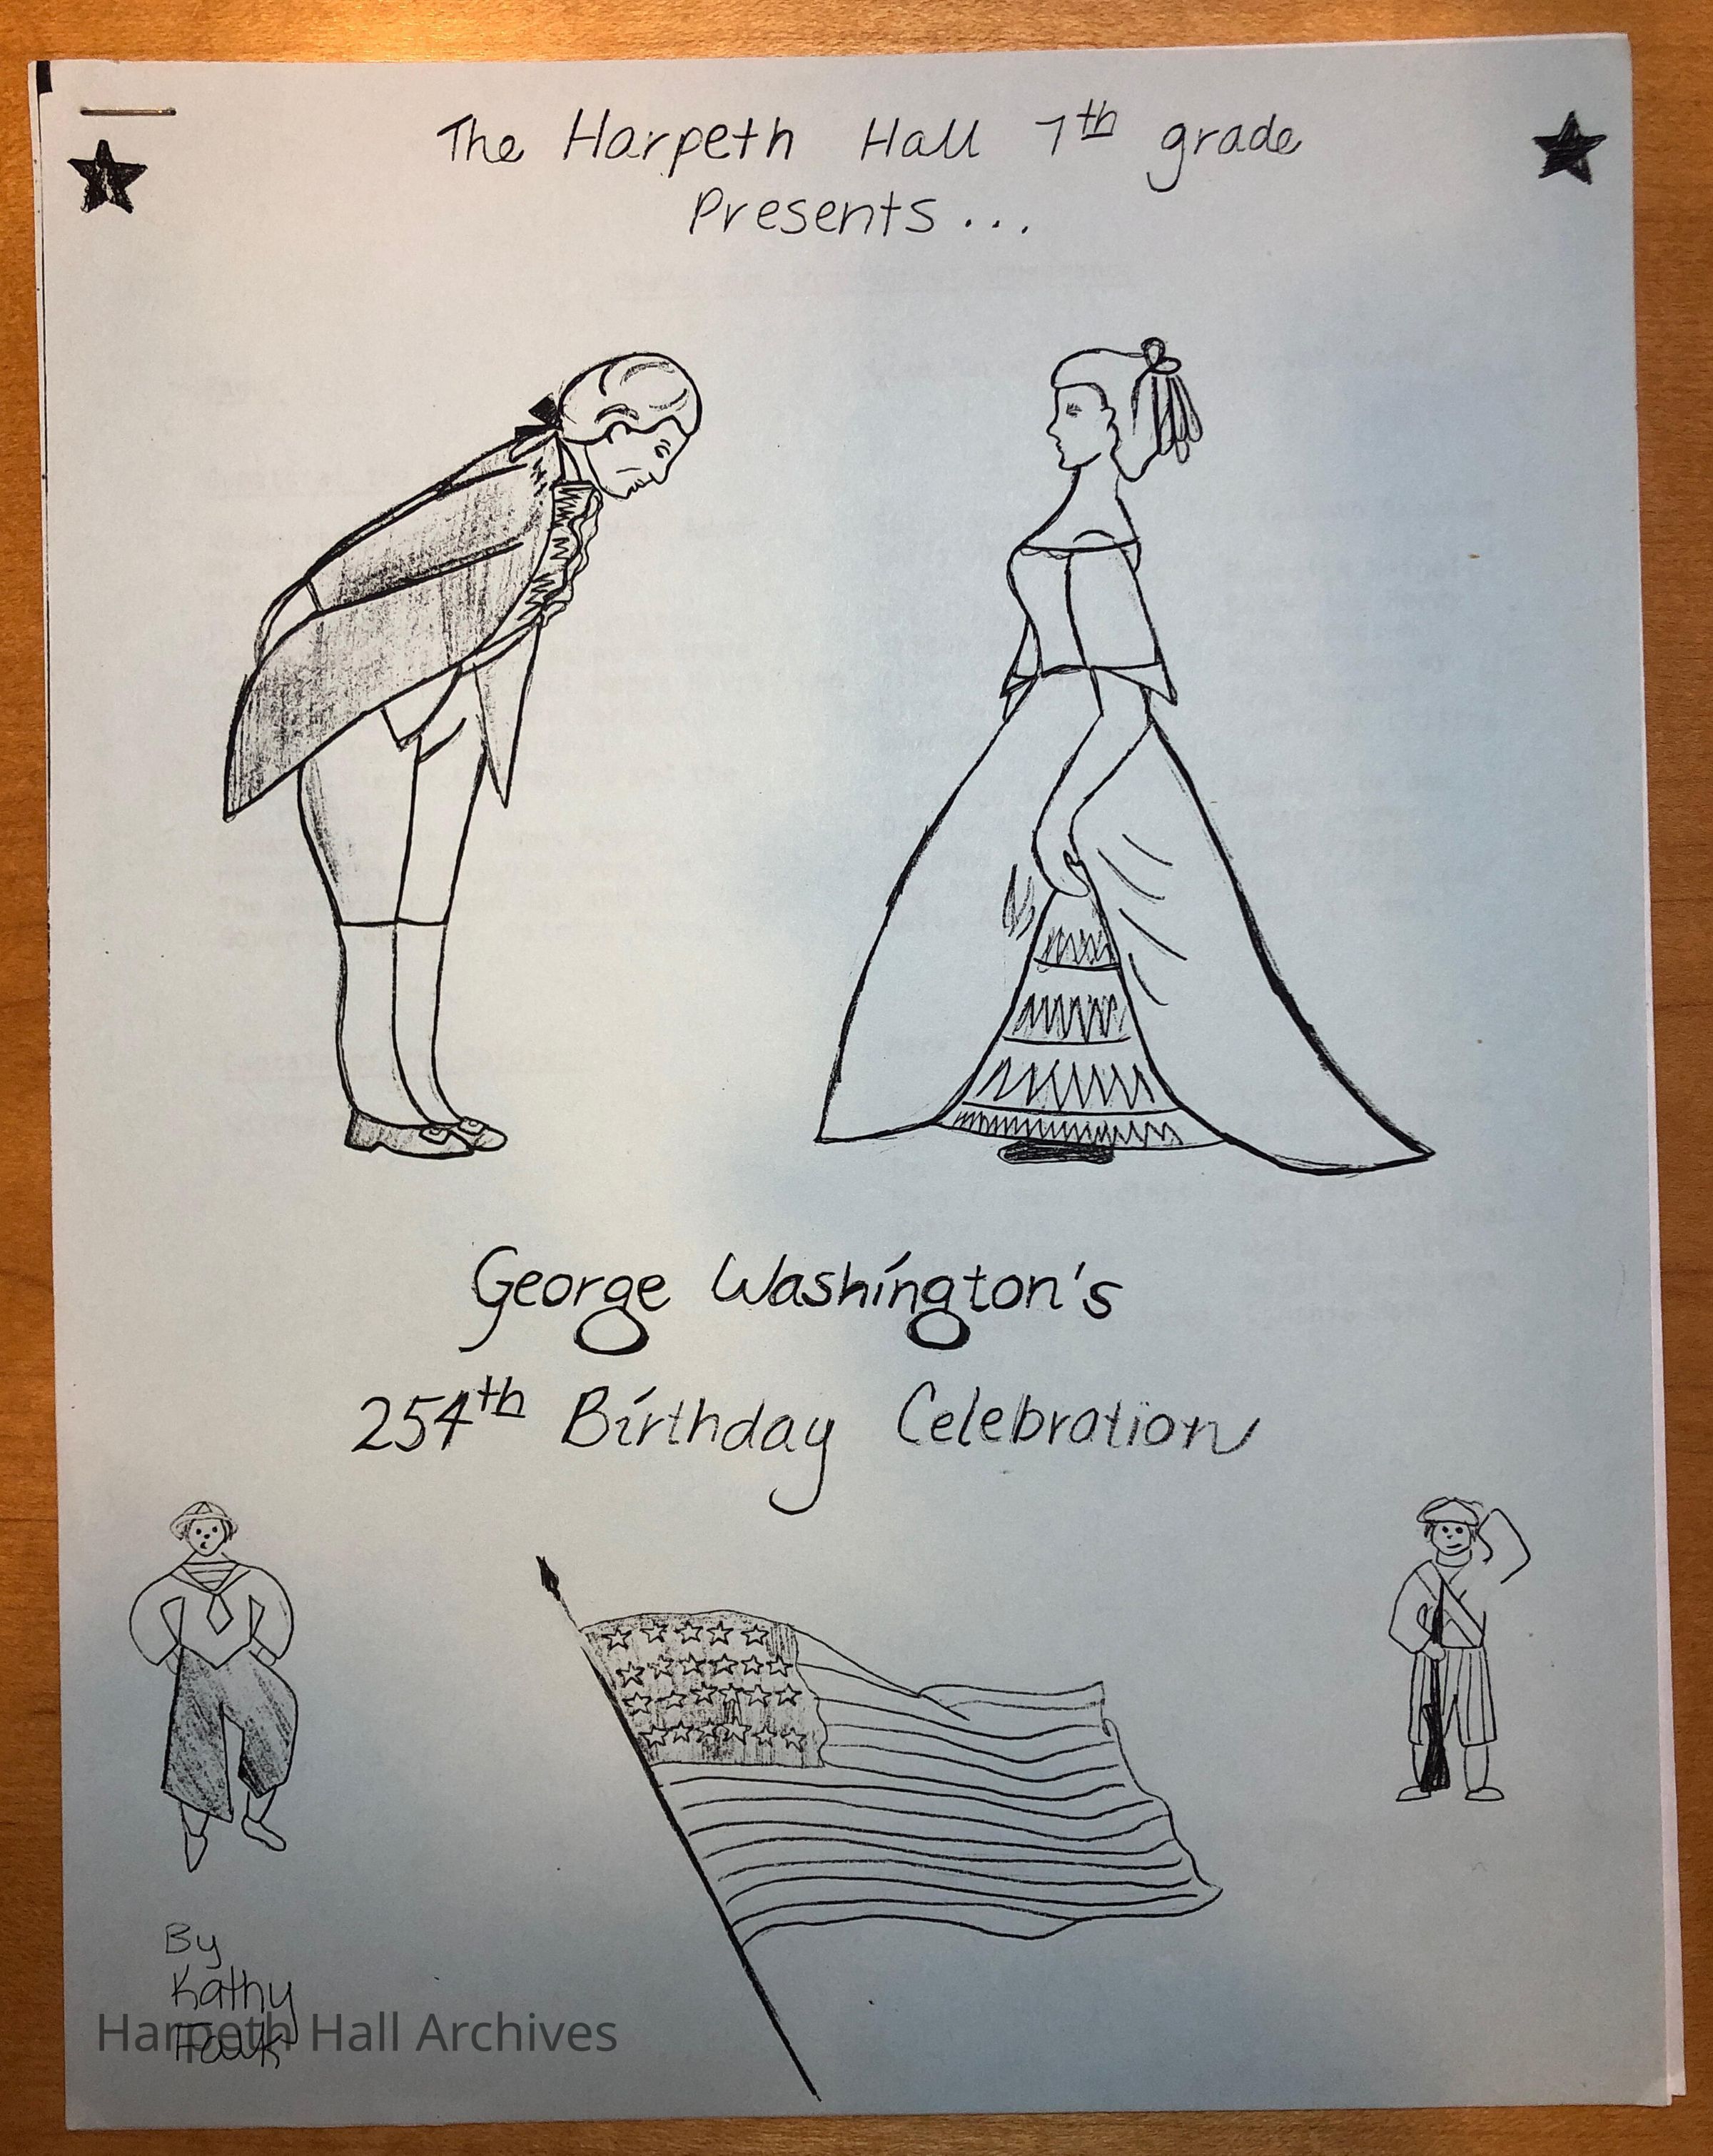 The Harpeth Hall 7th grade
Presents...
George Washington's
254th Birthday Celebration
By
Kathy
Harpeth Hall Archives